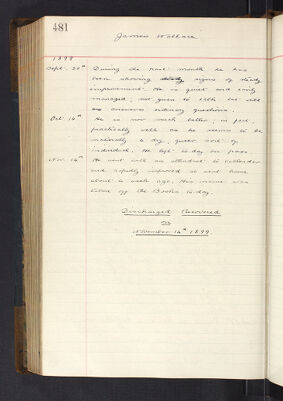 481
James Wallace
1899
Sept. 20th During the past month he has
been showing steady signs of steady
improvement. He is quiet and easily
managed, not given to talk but will
answer ordinary questions.
Oct. 14th He is now much better, in fact
practically well as he seems to be
naturally a dry, queer sort of
individual. He left to-day on pass.
Nov. 14th He went with an attendant to Callander
and rapidly improved at and home
about a week ago. His name was
taken off the Books to-day.
Discharged Recovered
November 14th 1899.